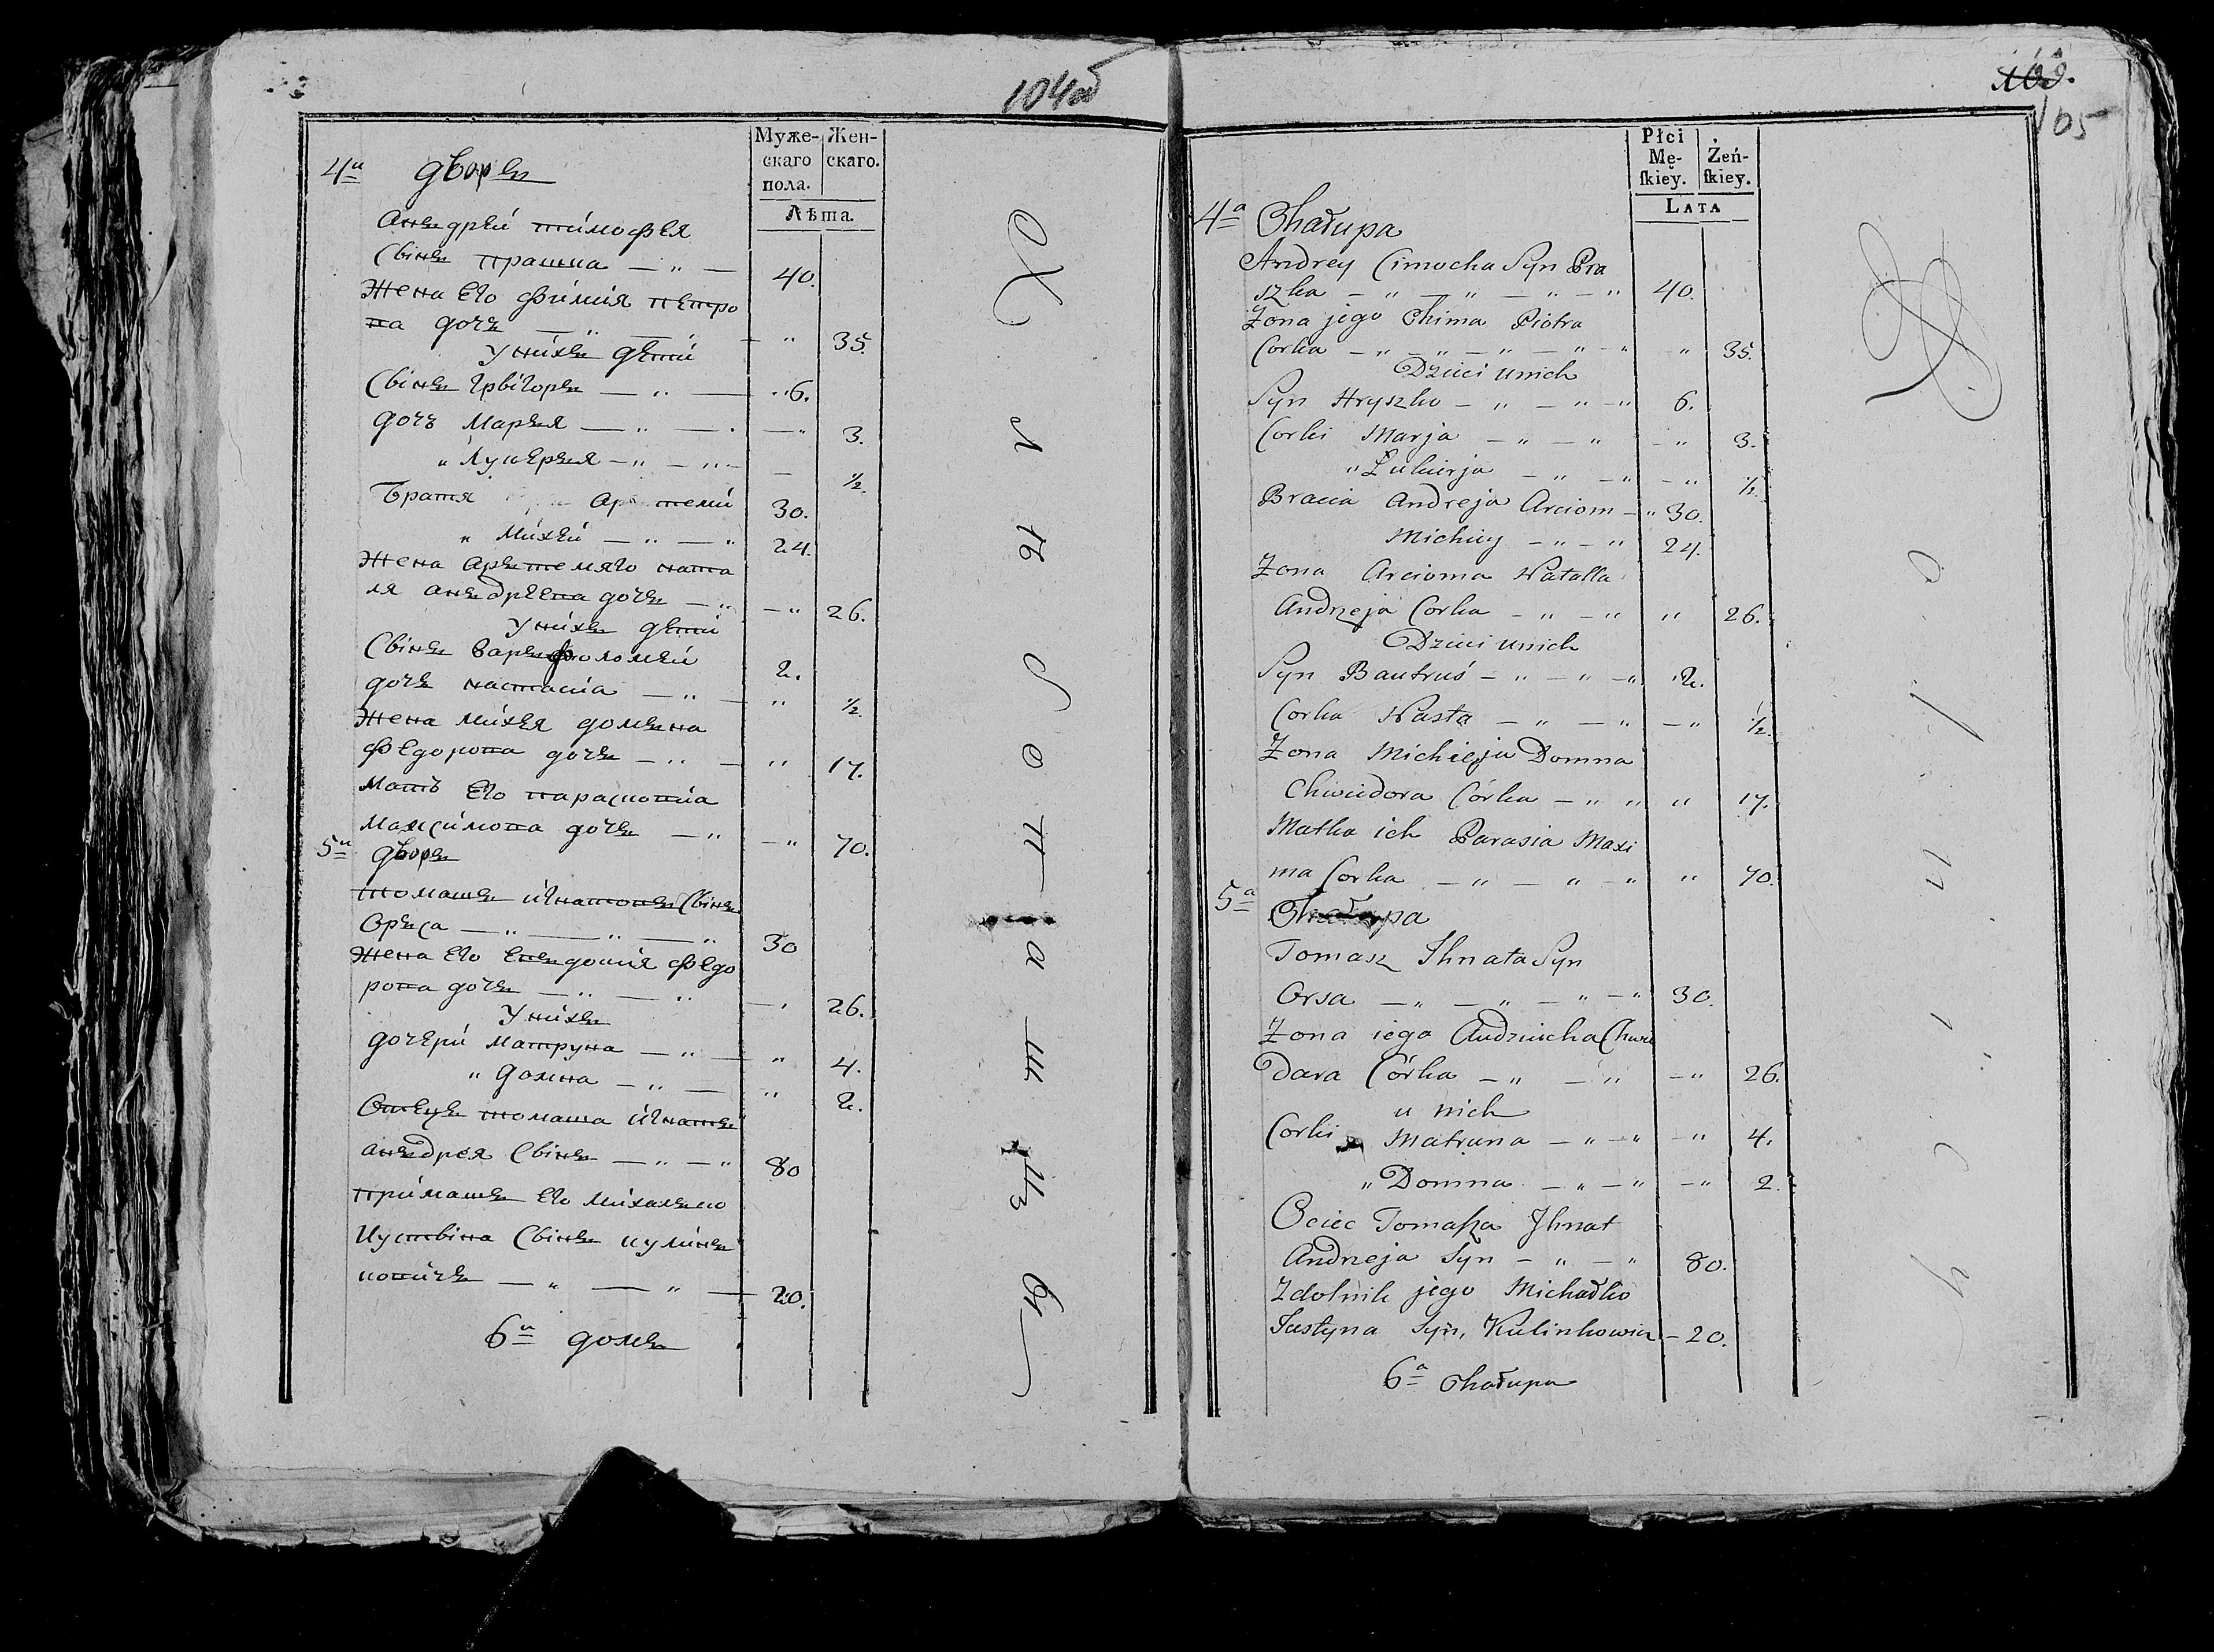 104об
Муже-
скаго
пола.
Жен-
скаго.
Лѣта.
4й дворъ
Анъдрей тимофея
Сынъ прашка — " — 40.
жена Его Фимия петро
ва дочъ — " — " — " 35.
У нихъ дети
Сынъ григоръ — " — " 6.
дочъ Маръя — " — " 3.
" Лукеръя — " — " — ½.
Братя Аръ темй 30.
" Михей — " — " 24.
жена Аръtемяго ната
ля анъдреева дочъ — " — " 26.
У нихъ дети
Сынъ варъфоломей 2.
дочъ настасиа — " — " ½.
жена михея домъна
федорова дочъ — " — " 17.
мать Его парасковиа
максимова дочъ — " — " 70.
5й дворъ
томашъ игнатовъ Сынъ
Оръса — " — " — " 30
жена Его Евъдокия федо
рова дочъ — " — " — " 26.
У нихъ
дочери матруна — " — " 4.
" домна — " — " 2.
Отецъ томаша игнатъ
анъдрея Сынъ — " — " 80
примашъ Его михалъко
Иустина Сынъ кулинъ
ковичъ — " — " — 20.
6й домъ
105
Płci
Mę-
skiey.
Żeń-
skiey.
LATA
4a Chałupa
Andrey Cimocha Syn Pra
szka — " — " — " — " 40.
Żona jego Chima Piotra
Corka — " — " — " — " — " " 35.
Dzieci unich
Syn Hryszko — " — " — " 6.
Corki Marja — " — " — " 3.
" Łukierja — " — " — " ½
Bracia Andreja Arciom — " 30.
Michiey — " — " 24.
Żona Arcioma Natalla
Andrzeja Corka — " — " " 26.
Dzieci unich
Syn Bautruś — " — " — " 2.
Corka Nasta — " — " — " ½.
Żona Michieja Domna
Chwiedora Córka — " " " 17.
Matka ich Parasia Maxi
ma Corka — " — " — " " 70.
5a Chałupa
Tomasz Ihnata Syn
Orsa — " — " — " — " 30.
Żona iego Audziucha Chwie
dara Córka — " — " — " 26.
u nich
Corki Matruna — " — " — " 4.
" Domna — " — " — " 2.
Ociec Tomasza Ihnat
Andrzeja Syn — " — " 80.
Zdolnik jego Michałko
Justyna Syn, Kulinkowicz — 20.
6a Chałupa